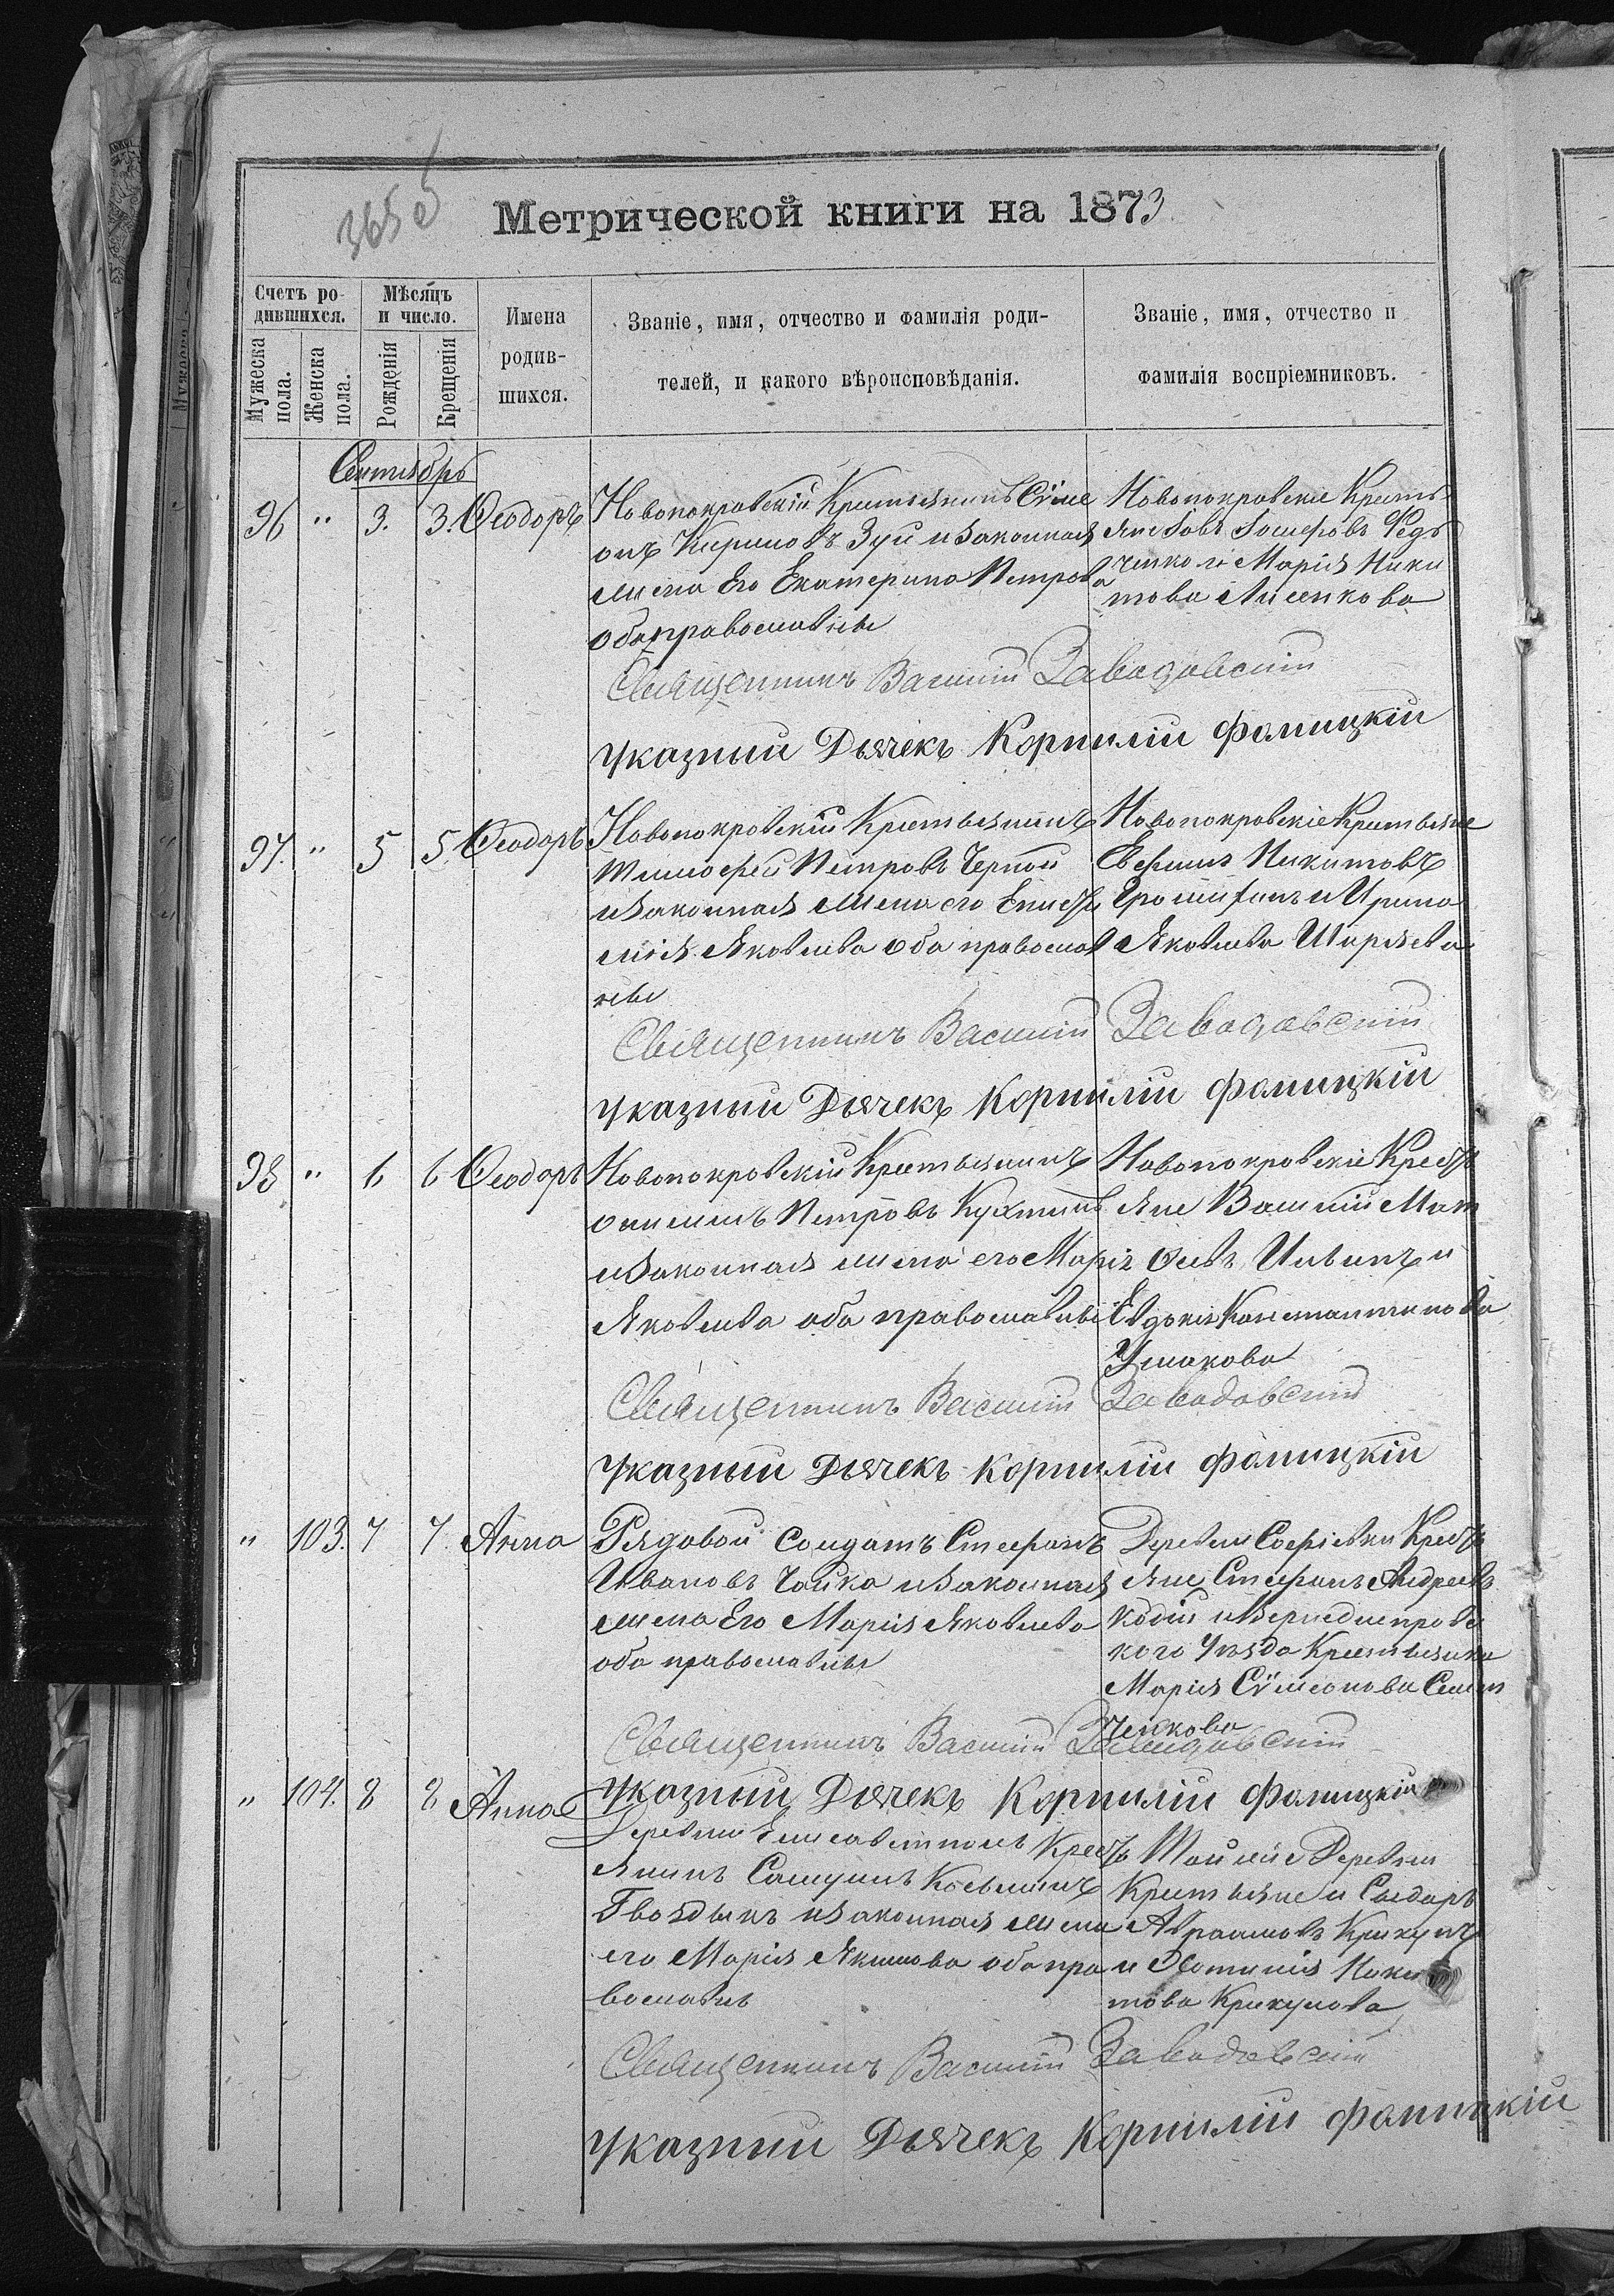 365 об
Метрической книги на 1873
Счетъ ро-
дившихся.
Мѣсяцъ
и число.
Мужеска
пола.
Женска
пола.
Рожденія
Крещенія
Имена
родив-
шихся.
Званіе, имя, отчество и фамилія роди-
телей, и какого вѣроисповѣданія.
Званіе, имя, отчество и
фамилія воспріемниковъ.
Сентябрь
96 " 3. 3. Ѳеодоръ
Новопокровскій Крестьянинъ Сѵме
онъ Кириловъ Зуй и законная
жена Его Екатерина Петрова
оба православны
Новопокровскіе Кресть
яне Іовъ Іосифовъ Федь
ченко и Марія Ники
това Лисенкова
Священникъ Василій Заводовскій
Указный Дьячекъ Корнилій Фомицкій
97. " 5 5 Ѳеодоръ
Новопокровскій Крестьянинъ
Тимофей Петровъ Черной
и законная жена его Епис
мія Яковлева оба православ
ны
Новопокровскіе Крестьяне
Евфимъ Никитовъ
и Ирина
Яковлева Ширяева
Священникъ Василій Заводовскій
Указный Дьячекъ Корнилій Фомицкій
98 " 6 6 Ѳеодоръ
Новопокровскій Крестьянинъ
Онисимъ Петровъ Кухтинъ
и законная жена его Марія
Яковлева оба православны
Новопокровскіе Кресть
яне Василій Мат
ѳеевъ Ильинъ и
Евдокія Константинова
Ушакова
Священникъ Василій Заводовскій
Указный Дьячекъ Корнилій Фомицкій
" 103. 7 7. Анна
Рядовой Солдатъ Стефанъ
Ивановъ Чайка и законная
жена Его Марія Яковлева
оба православны
Деревни Софіевки Кресть
яне Стефанъ Андреевъ
и Верхнеднепровс
кого Уѣзда Крестьянка
Марія Сѵмеонова Семен
ченкова
Священникъ Василій Заводовскій
Указный Дьячекъ Корнилій Фомицкій
" 104. 8 8 Анна
Деревни Елисаветполь Кресть
янинъ Самуилъ Косьминъ
Гвоздыкъ и законная жена
его Марія Якимова оба пра
вославны
Той же Деревни
Крестьяне Исидоръ
Авраамовъ Крикунъ
и Фотинія Ники
това Крикунова
Священникъ Василій Заводовскій
Указный Дьячекъ Корнилій Фомицкій